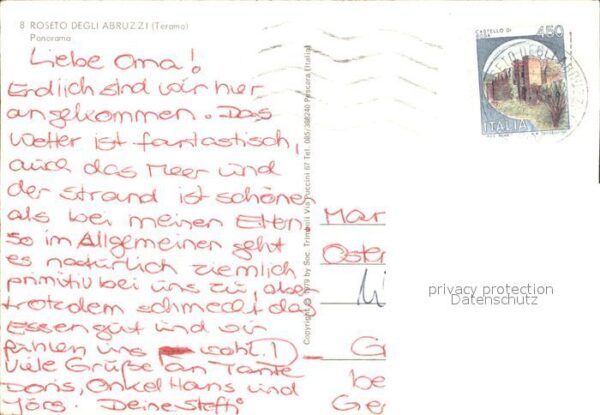 8 ROSETO DEGLI ABRUZZI (Teramo)
Panorama
Liebe Oma!
Endlich sind wir hier
angekommen. Das
Wetter ist fantastisch,
auch das Meer und
der Strand ist schöner
als bei meinen Eltern,
so im Allgemeinen geht
es natürlich ziemlich
primitiv bei uns zu, aber
trotzdem schmeckt das
Essen gut und wir
fühlen uns wohl.
Viele Grüße an Tante
Doris, Onkel Hans und
Jörg. Deine Steffi
Copyright © 1979 by Soc. Trimboli Via Puccini 67 Tel. 085/388240 Pescara (Italia)
CASTELLO DI
450
ITALIA
Mar
Oster
be
Ge
privacy protection
Datenschutz